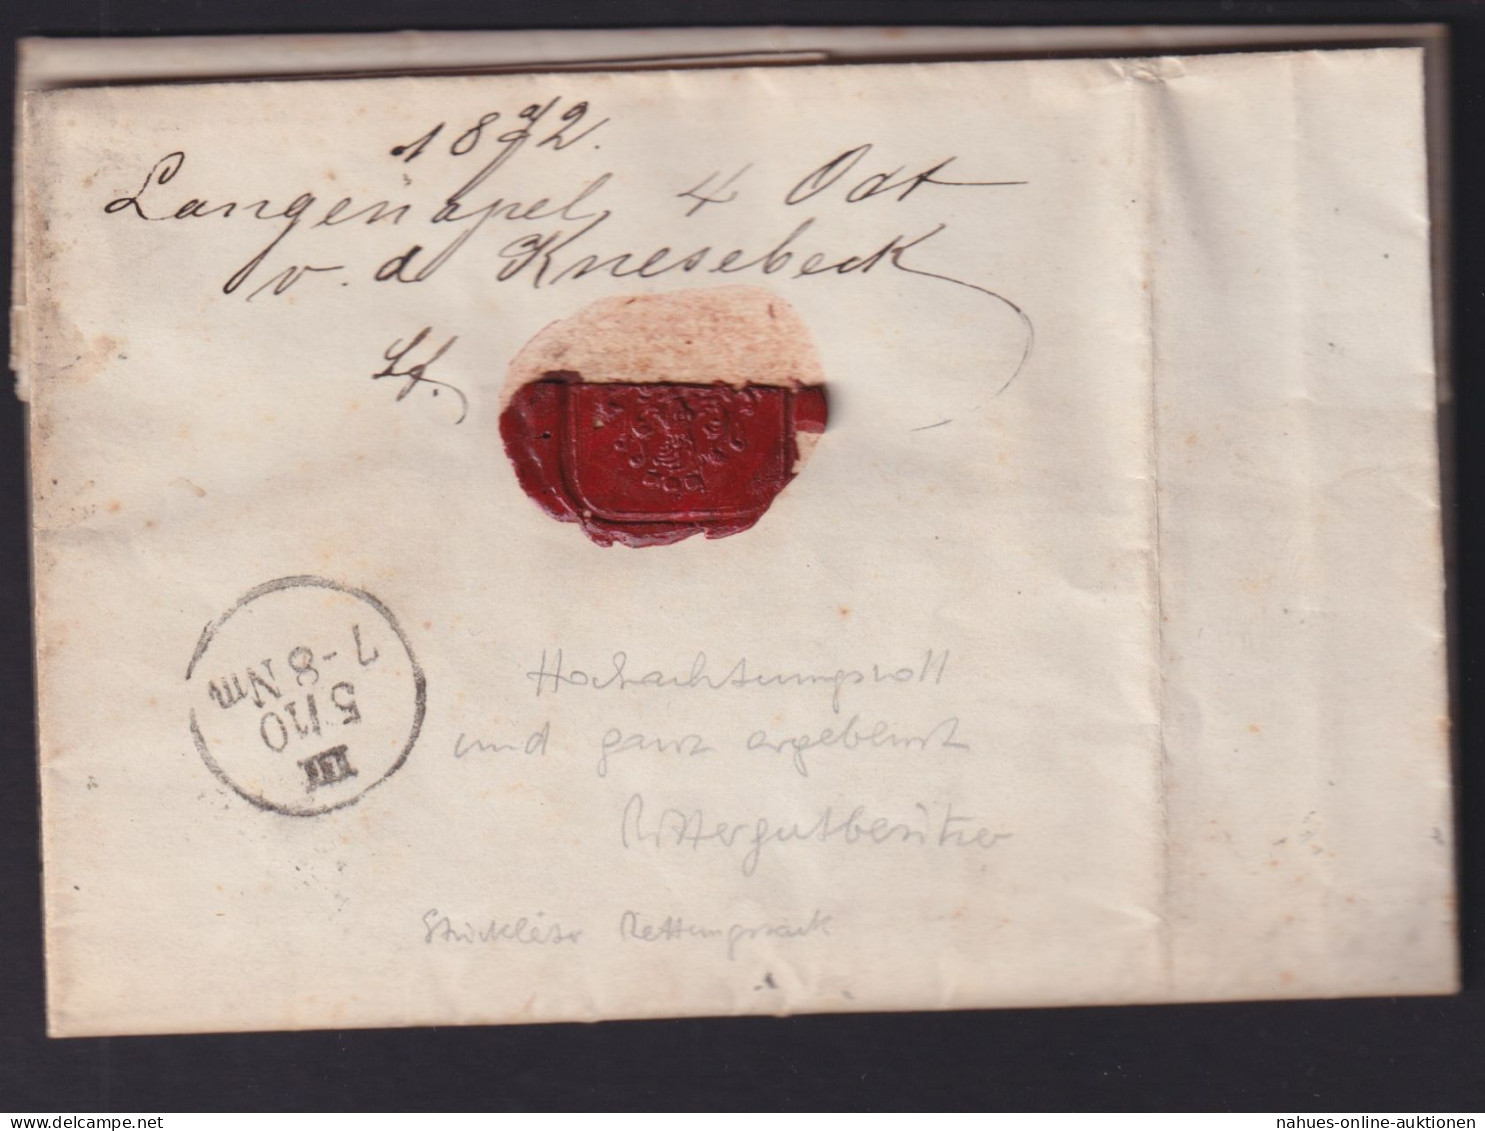 1872.
Langenapel, 4 Oct
v. d. Knesebeck
7-8 Nm
5/10
III
Hochachtungsvoll
und ganz ergebenst
Rittergutbesitzer
nahues-online-auktionen